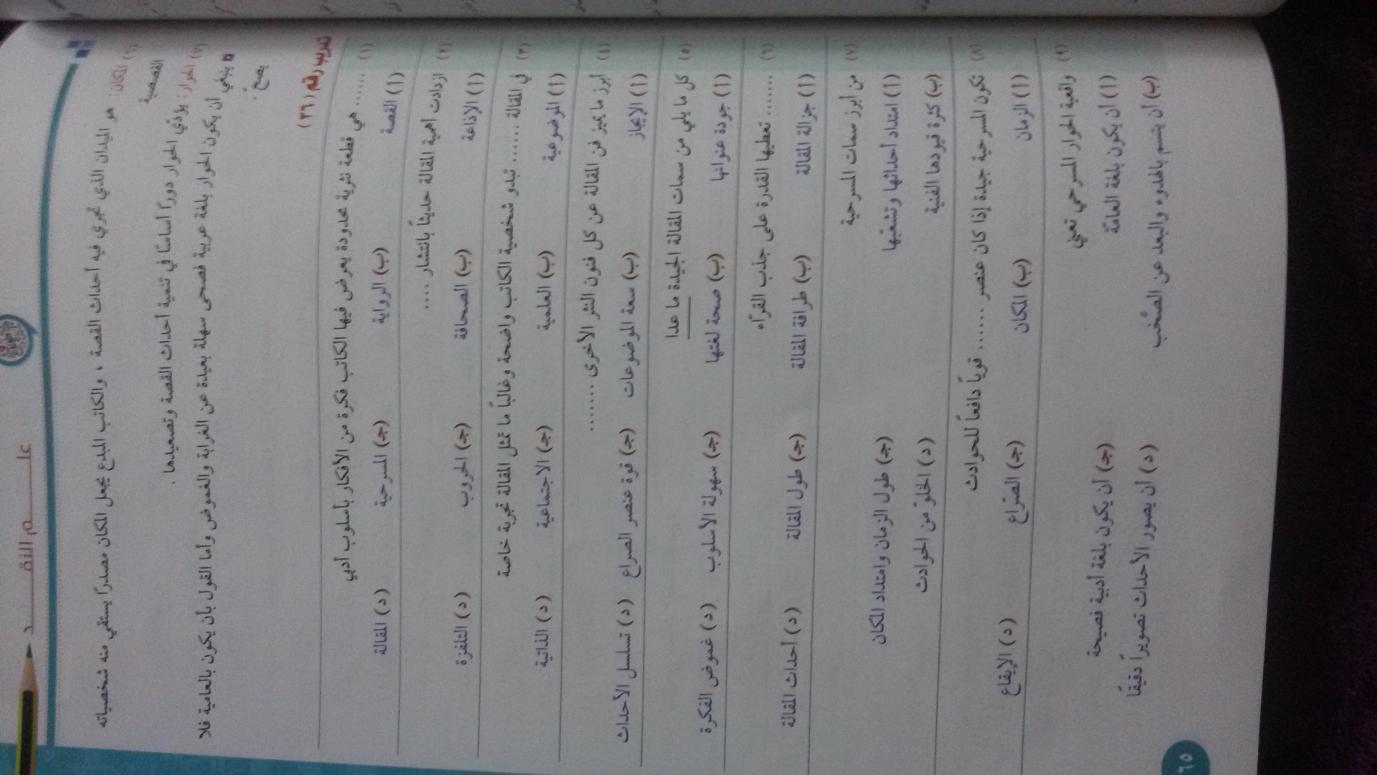 علـــــم النقـــــد
(٦) المكان: هو الميدان الذي تجري فيه أحداث القصة ، والكاتب المبدع يجعل المكان مصدراً يستقي منه شخصياته
القصصية .
(٧) الحوار: يؤدّي الحوار دوراً أساسًا في تنمية أحداث القصة وتصعيدها .
ينبغي أن يكون الحوار بلغة عربية فصحى سهلة بعيدة عن الغرابة والغموض وأما القول بأن يكون بالعامية فلا
يصح .
تدريب رقم (٣٦)
(١) ...... هي قطعة نثرية محدودة يعرض فيها الكاتب فكرة من الأفكار بأسلوب أدبي
(أ) القصة (ب) الرواية (جـ) المسرحية (د) المقالة
(٢) ازدادت أهمية المقالة حديثاً بانتشار ....
(أ) الإذاعة (ب) الصحافة (جـ) الحروب (د) التلفزة
(٣) في المقالة ...... تبدو شخصية الكاتب واضحة وغالباً ما تمثل المقالة تجربة خاصة
(أ) الموضوعية (ب) العلمية (جـ) الاجتماعية (د) الذاتية
(٤) أبرز ما يميز فن المقالة عن كل فنون النثر الأخرى .......
(أ) الإيجاز (ب) سعة الموضوعات (جـ) قوة عنصر الصراع (د) تسلسل الأحداث
(٥) كل ما يلي من سمات المقالة الجيدة ما عدا
(أ) جودة عنوانها (ب) صحة لغتها (جـ) سهولة الأسلوب (د) غموض الفكرة
(٦) ....... تعطيها القدرة على جذب القرآء
(أ) جزالة المقالة (ب) طرافة المقالة (جـ) طول المقالة (د) أحداث المقالة
(٧) من أبرز سمات المسرحية
(أ) امتداد أحداثها وتشعبّها (جـ) طول الزمان وامتداد المكان
(ب) كثرة قيودها الفنية (د) الخلوّ من الحوادث
(٨) تكون المسرحية جيدة إذا كان عنصر ...... قوياً دافعاً للحوادث
(أ) الزمان (ب) المكان (جـ) الصّراع (د) الإيقاع
(٩) واقعية الحوار المسرحي تعني
(أ) أن يكون بلغة العامّة (جـ) أن يكون بلغة أدبية فصيحة
(ب) أن يتسم بالهدوء والبعد عن الصّخب (د) أن يصور الأحداث تصويراً دقيقاً
٦٥